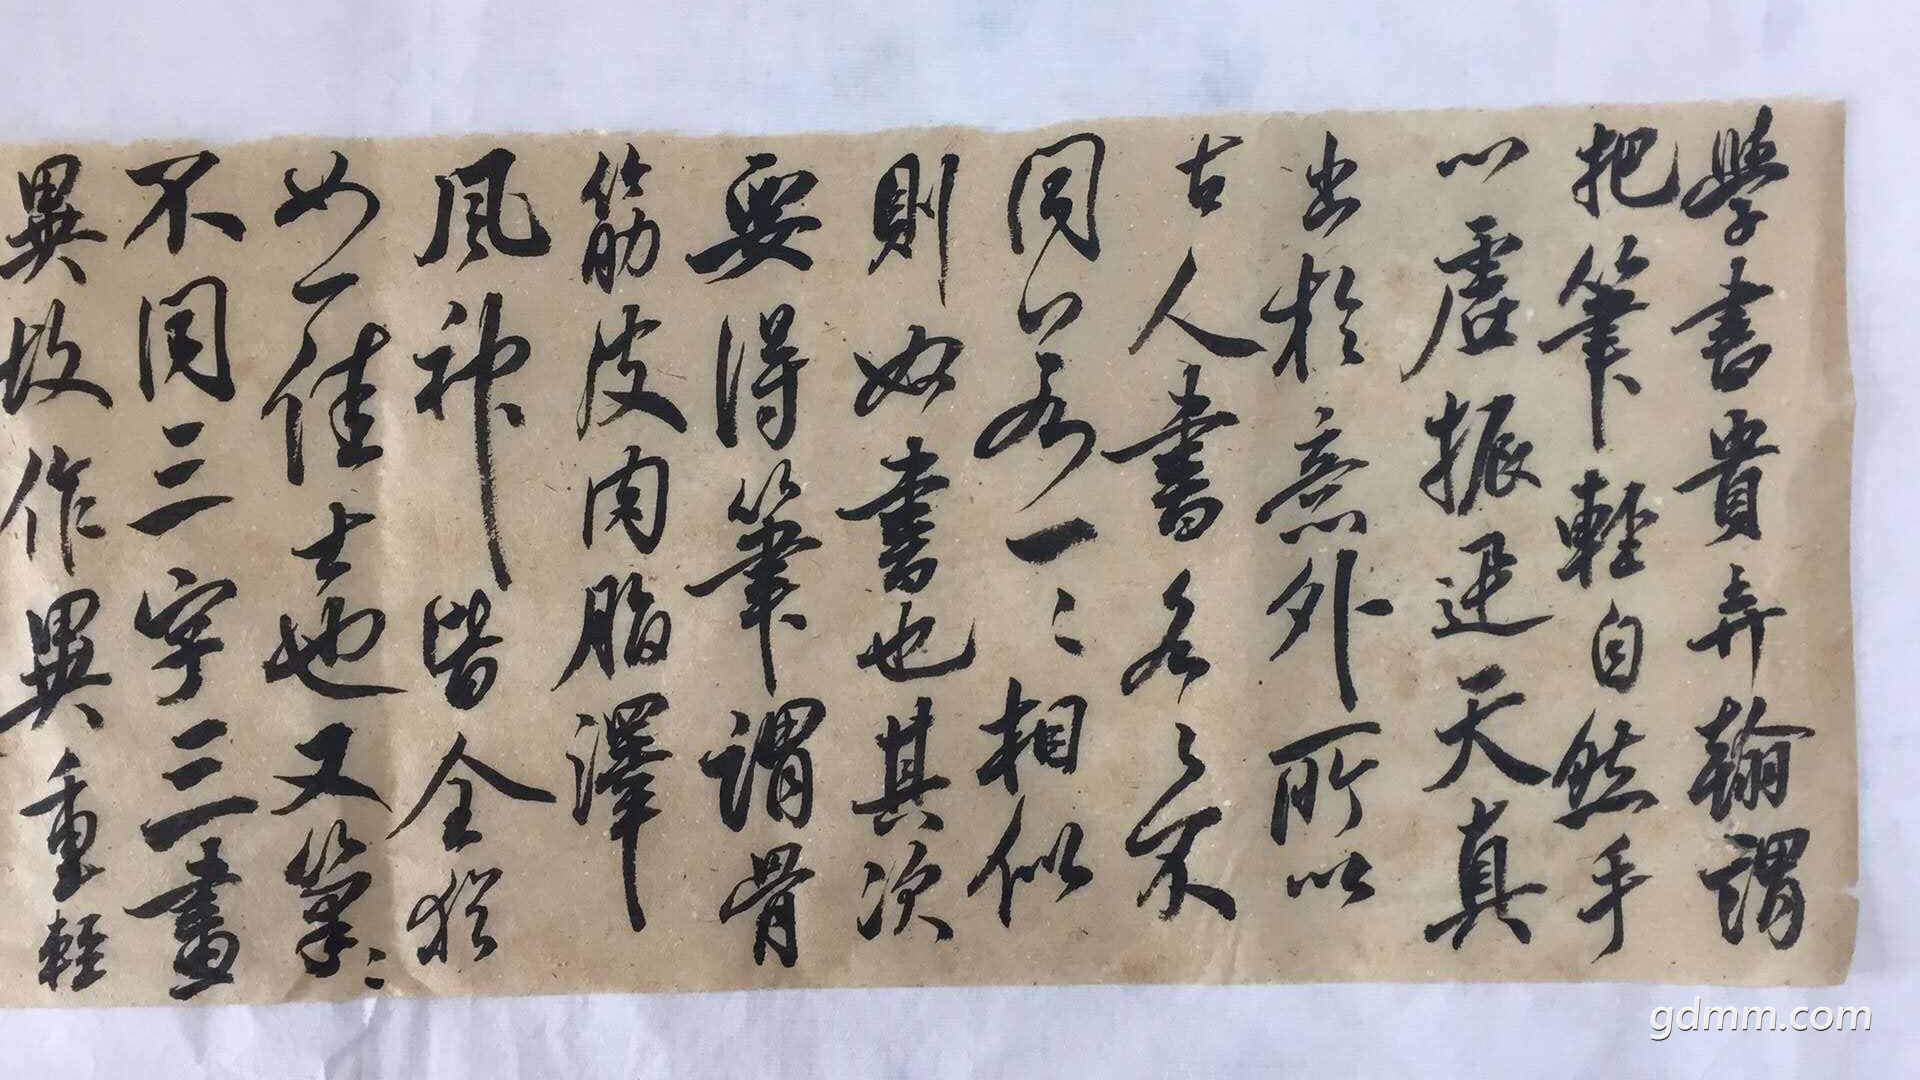 學書貴弄翰謂
把筆輕自然手
心虛振迅天真
出於意外所以
古人書各〻不
同若一〻相似
則奴書也其次
要得筆謂骨
筋皮肉脂澤
風神皆全猶
如一佳士也又筆〻
不同三字三畫
異故作異重輕
gdmm.com